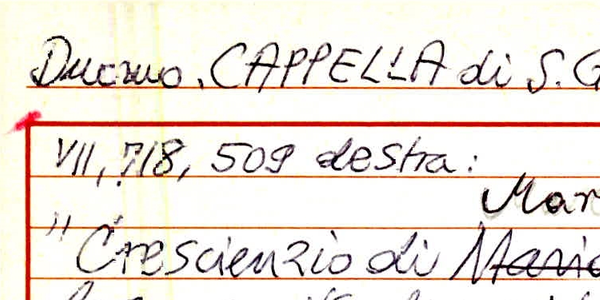 Duomo. CAPPELLA di S. G
VII, 718, 509 destra:
Mar
" Crescienzio di Mario